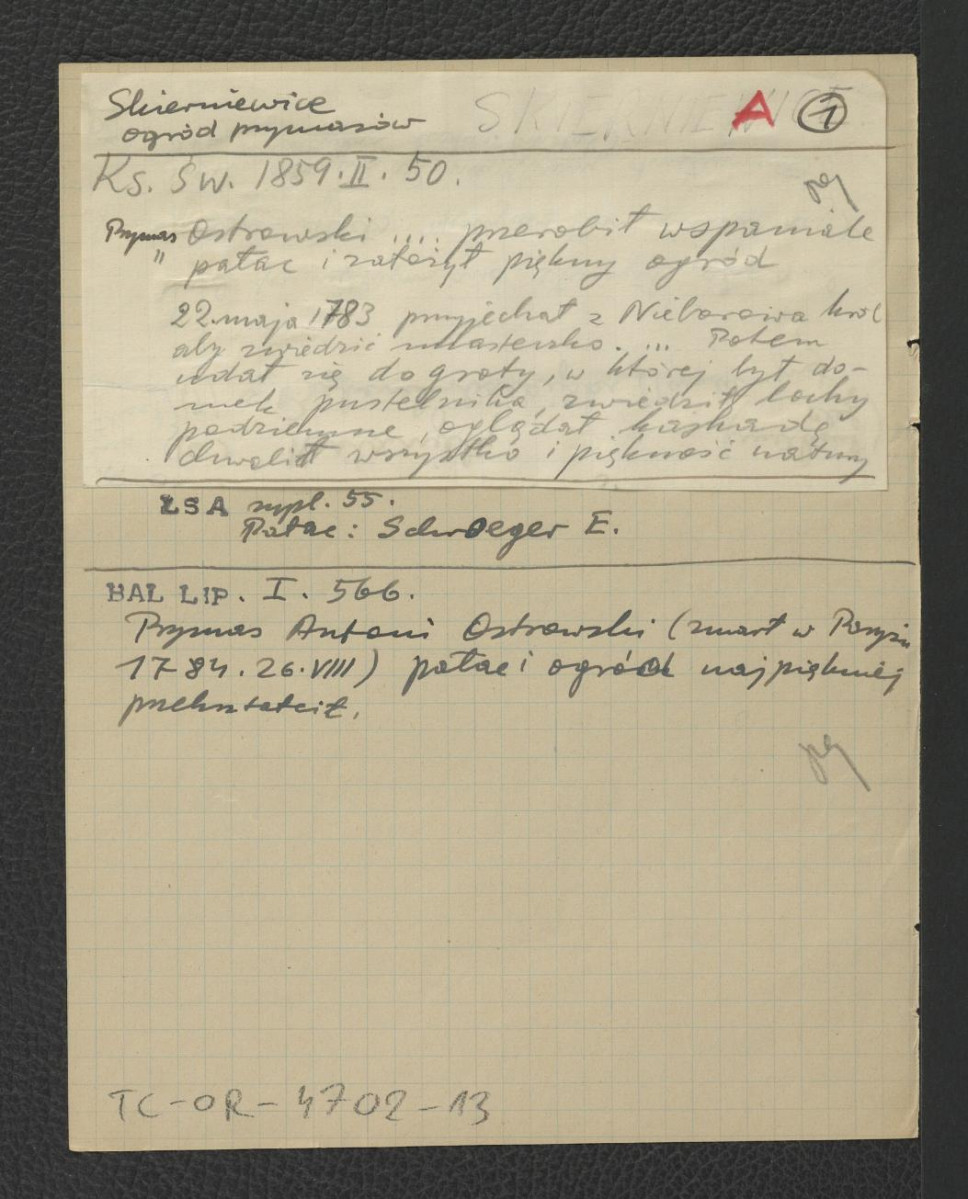 Skierniewice SKIERNIEWICE A 1
ogród prymasów
Ks. Św. 1859. II. 50.
Prymas Ostrowski .... przerobił wspaniale
" pałac i założył piękny ogród
22 maja 1783 przyjechał z Nieborowa król
aby zwiedzić miasteczko. ... Potem
udał się do groty, w której był do-
mek pustelnika, zwiedził lochy
podziemne, oglądał kaskadę
chwalił wszystko i piękność natury
ŁSA zypl. 55.
Pałac: Schroeger E.
BAL LIP. I. 566.
Prymas Antoni Ostrowski (zmarł w Paryżu
1784. 26. VIII) pałac i ogród najpiękniej
przekształcił.
TC-OR-4702-13